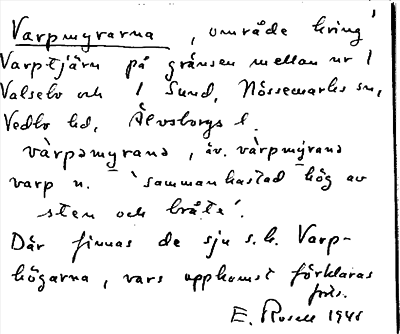 Varpmyrarna, område kring
Varptjärn på gränsen mellan nr 1
Valselv och 1 Sund, Nössemarks sn,
Vedbo hd, Älvsborgs l.
vàrpəmyrana, äv. vàrpmyrana
varp n. 'sammankastad hög av
sten och bråte'.
Där finnas de sju s.k. Varp-
högarna, vars uppkomst förklaras
E. Rosell 1941